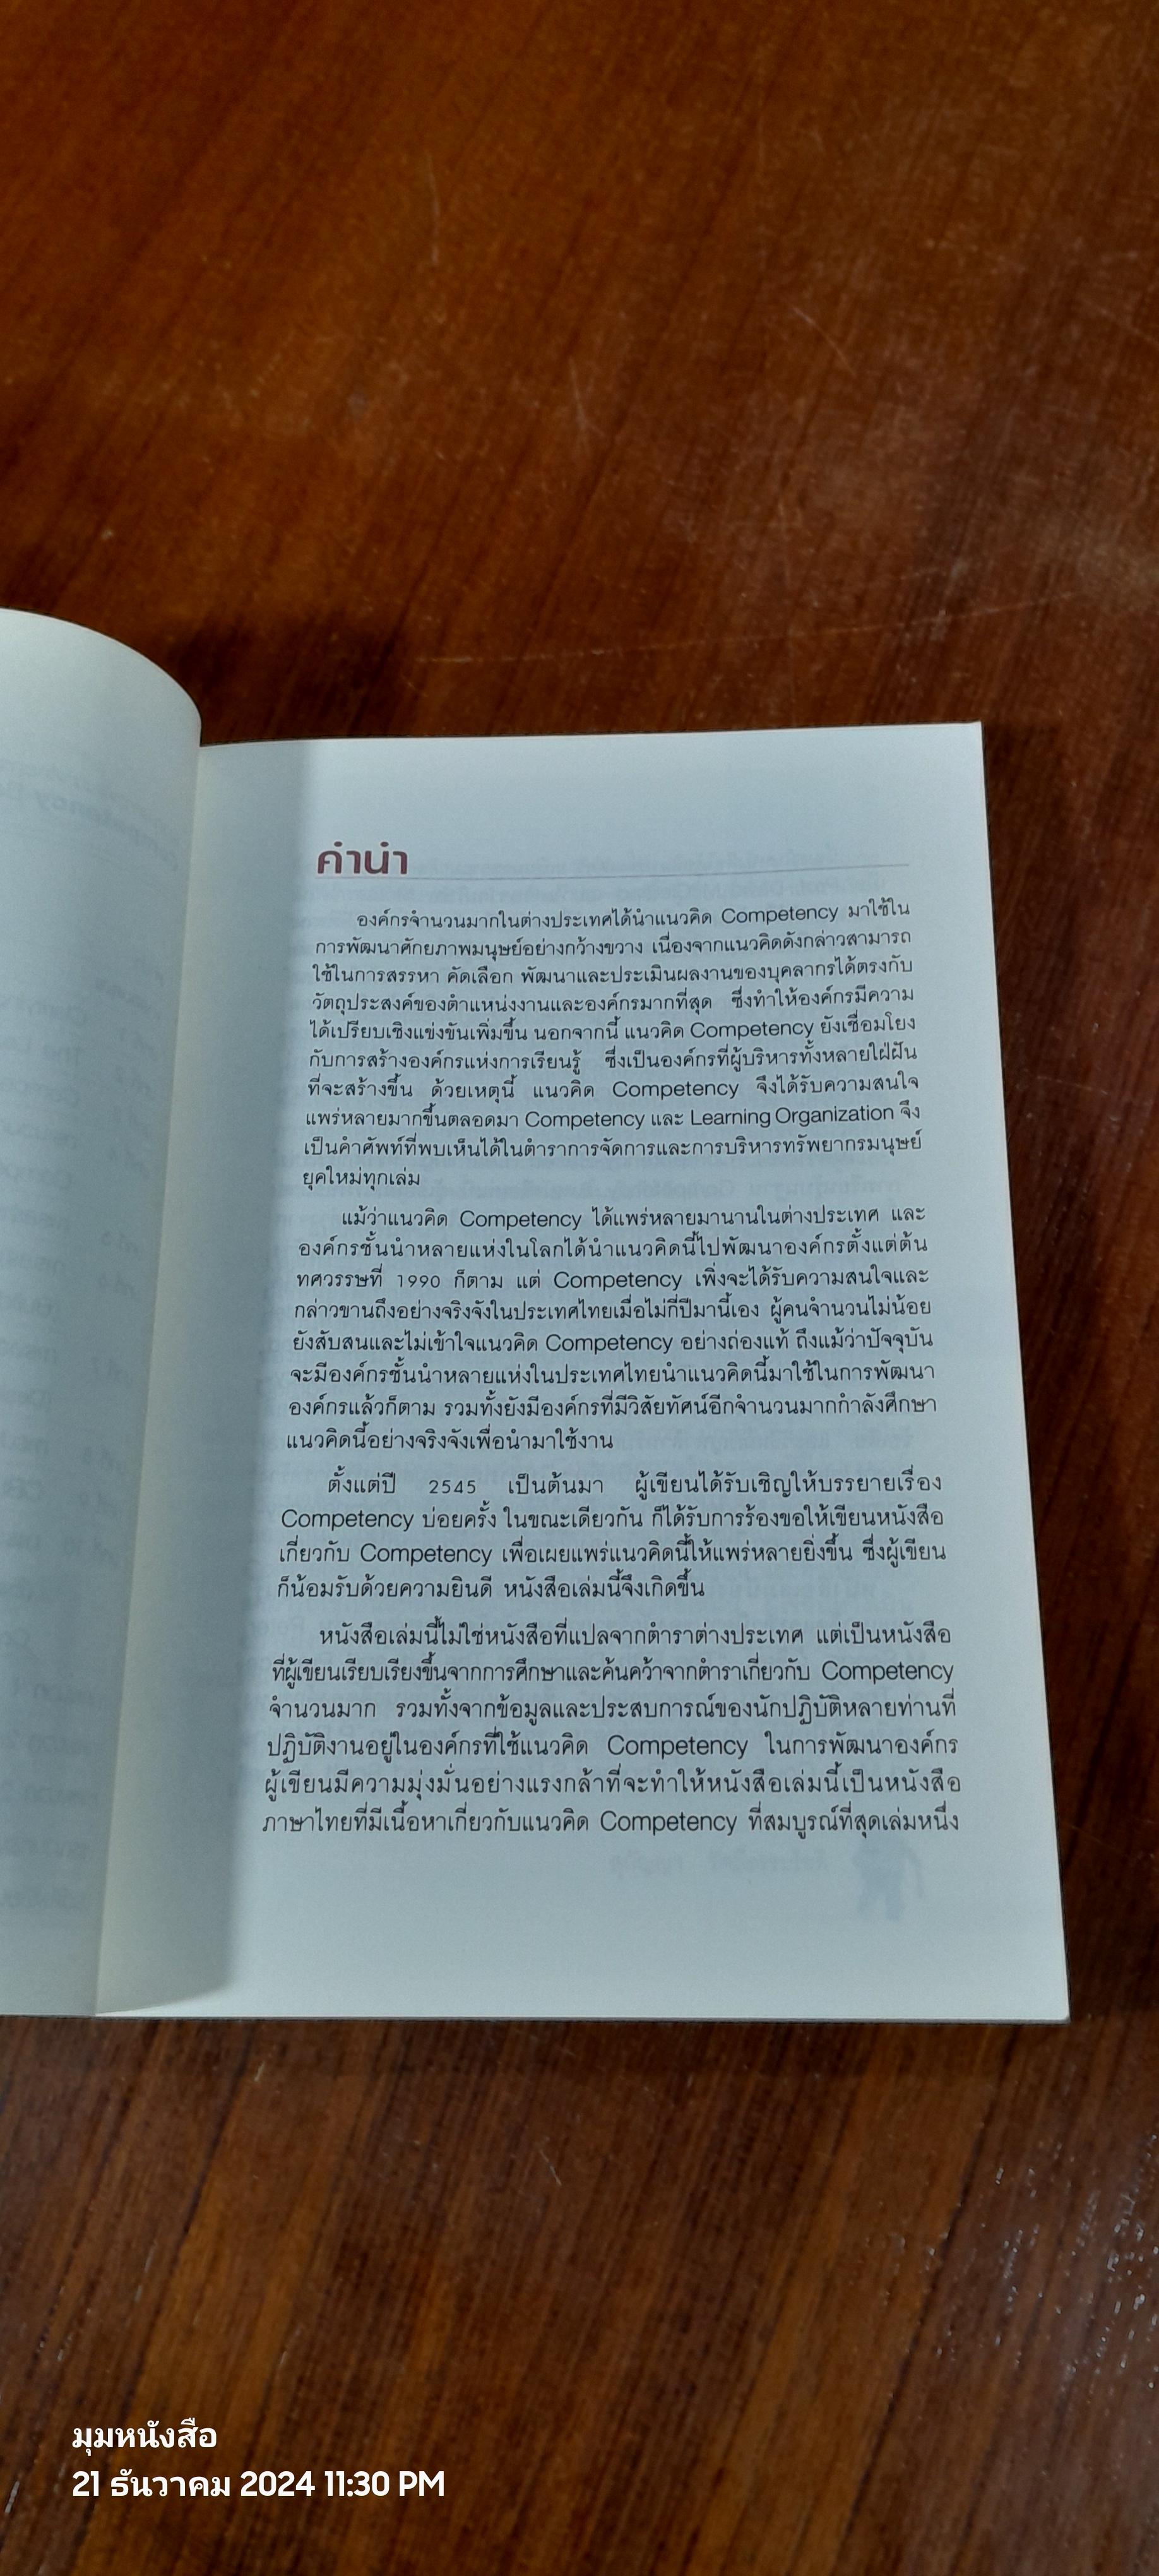 คำนำ
องค์กรจำนวนมากในต่างประเทศได้นำแนวคิด Competency มาใช้ใน
การพัฒนาศักยภาพมนุษย์อย่างกว้างขวาง เนื่องจากแนวคิดดังกล่าวสามารถ
ใช้ในการสรรหา คัดเลือก พัฒนาและประเมินผลงานของบุคลากรได้ตรงกับ
วัตถุประสงค์ของตำแหน่งงานและองค์กรมากที่สุด ซึ่งทำให้องค์กรมีความ
ได้เปรียบเชิงแข่งขันเพิ่มขึ้น นอกจากนี้ แนวคิด Competency ยังเชื่อมโยง
กับการสร้างองค์กรแห่งการเรียนรู้ ซึ่งเป็นองค์กรที่ผู้บริหารทั้งหลายใฝ่ฝัน
ที่จะสร้างขึ้น ด้วยเหตุนี้ แนวคิด Competency จึงได้รับความสนใจ
แพร่หลายมากขึ้นตลอดมา Competency และ Learning Organization จึง
เป็นคำศัพท์ที่พบเห็นได้ในตำราการจัดการและการบริหารทรัพยากรมนุษย์
ยุคใหม่ทุกเล่ม
แม้ว่าแนวคิด Competency ได้แพร่หลายมานานในต่างประเทศ และ
องค์กรชั้นนำหลายแห่งในโลกได้นำแนวคิดนี้ไปพัฒนาองค์กรตั้งแต่ต้น
ทศวรรษที่ 1990 ก็ตาม แต่ Competency เพิ่งจะได้รับความสนใจและ
กล่าวขานถึงอย่างจริงจังในประเทศไทยเมื่อไม่กี่ปีมานี้เอง ผู้คนจำนวนไม่น้อย
ยังสับสนและไม่เข้าใจแนวคิด Competency อย่างถ่องแท้ ถึงแม้ว่าปัจจุบัน
จะมีองค์กรชั้นนำหลายแห่งในประเทศไทยนำแนวคิดนี้มาใช้ในการพัฒนา
องค์กรแล้วก็ตาม รวมทั้งยังมีองค์กรที่มีวิสัยทัศน์อีกจำนวนมากกำลังศึกษา
แนวคิดนี้อย่างจริงจังเพื่อนำมาใช้งาน
ตั้งแต่ปี 2545 เป็นต้นมา ผู้เขียนได้รับเชิญให้บรรยายเรื่อง
Competency บ่อยครั้ง ในขณะเดียวกัน ก็ได้รับการร้องขอให้เขียนหนังสือ
เกี่ยวกับ Competency เพื่อเผยแพร่แนวคิดนี้ให้แพร่หลายยิ่งขึ้น ซึ่งผู้เขียน
ก็น้อมรับด้วยความยินดี หนังสือเล่มนี้จึงเกิดขึ้น
หนังสือเล่มนี้ไม่ใช่หนังสือที่แปลจากตำราต่างประเทศ แต่เป็นหนังสือ
ที่ผู้เขียนเรียบเรียงขึ้นจากการศึกษาและค้นคว้าจากตำราเกี่ยวกับ Competency
จำนวนมาก รวมทั้งจากข้อมูลและประสบการณ์ของนักปฏิบัติหลายท่านที่
ปฏิบัติงานอยู่ในองค์กรที่ใช้แนวคิด Competency ในการพัฒนาองค์กร
ผู้เขียนมีความมุ่งมั่นอย่างแรงกล้าที่จะทำให้หนังสือเล่มนี้เป็นหนังสือ
ภาษาไทยที่มีเนื้อหาเกี่ยวกับแนวคิด Competency ที่สมบูรณ์ที่สุดเล่มหนึ่ง
มุมหนังสือ
21 ธันวาคม 2024 11:30 PM